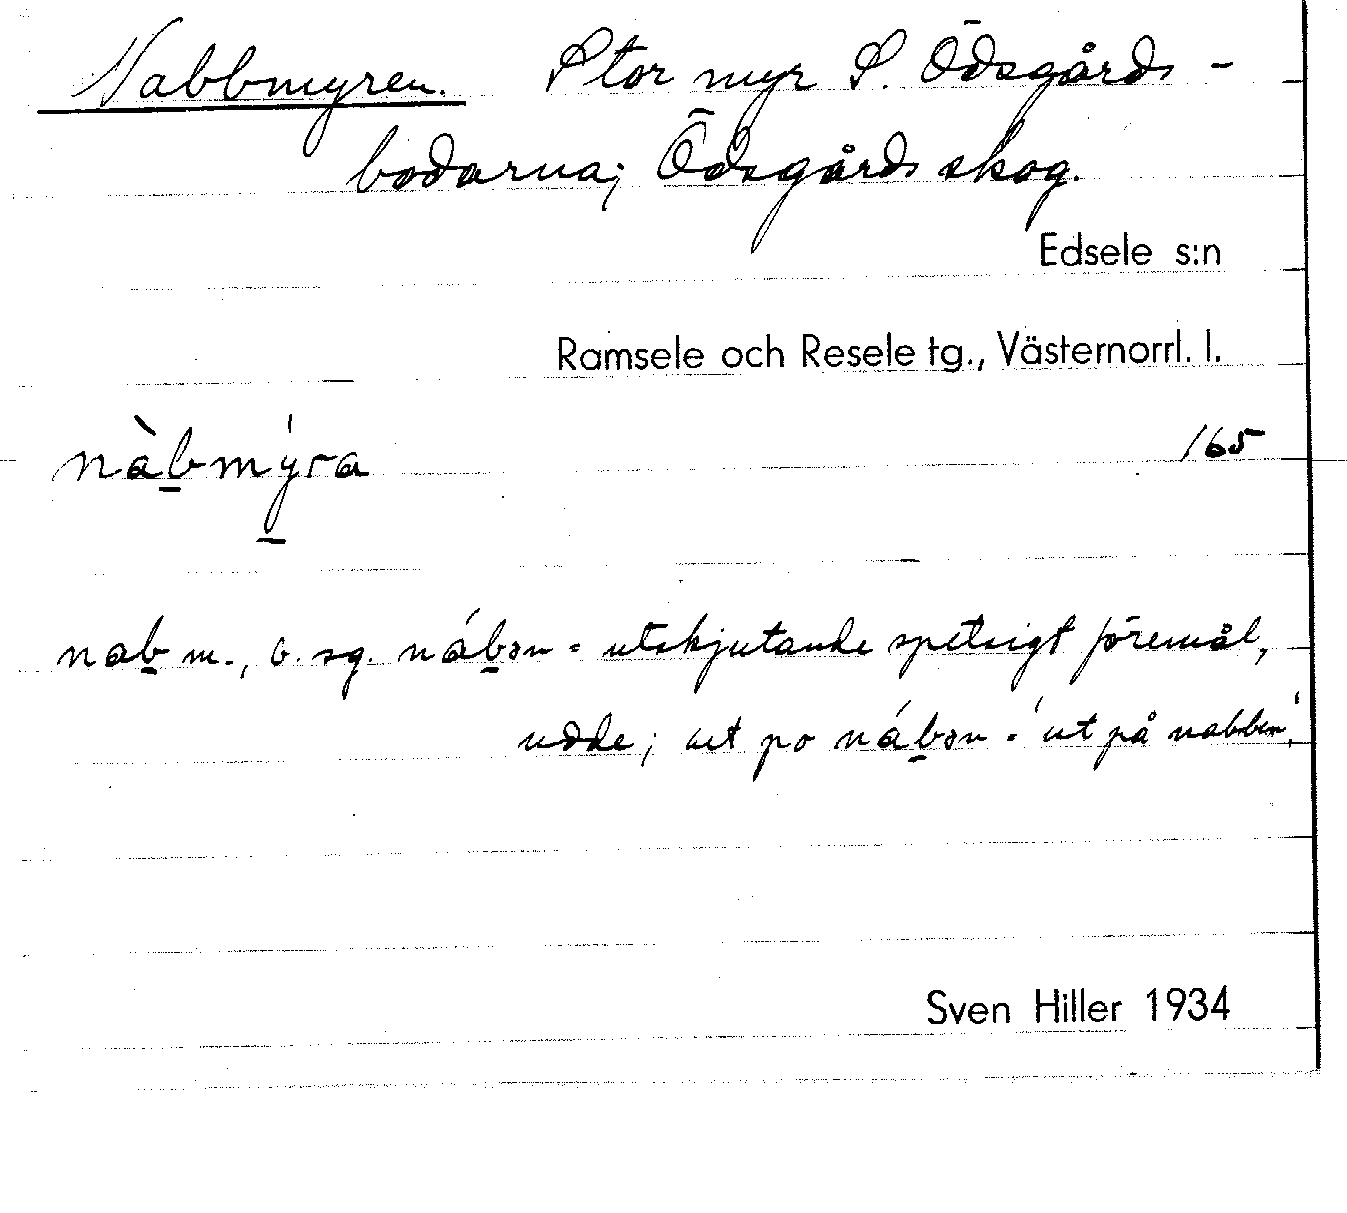 Nabbmyren. Stor myr S. Ödsgårds-
bodarna; Ödsgårds skog.
Edsele s:n
Ramsele och Resele tg., Västernorrl. l.
nàb̲mý̲ra 165
nab̲ m., b. sg. náb̲ən = utskjutande spetsigt föremål,
udde; ut po náb̲ən = 'ut på nabben'.
Sven Hiller 1934